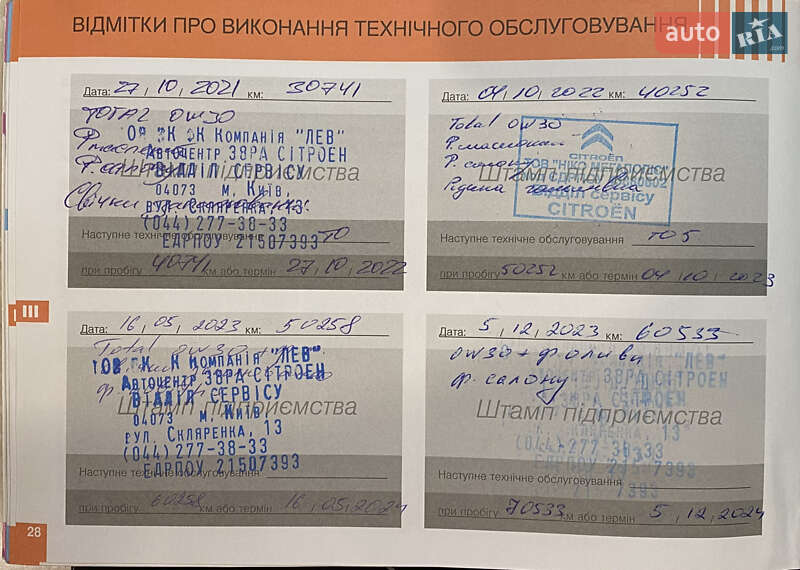 ВІДМІТКИ ПРО ВИКОНАННЯ ТЕХНІЧНОГО ОБСЛУГОВУВАННЯ
auto RIA.com
Дата: 27, 10, 2021 км: 30741
TOTAL 0W30
ТОВ ЗК ЗК Компанія "ЛЕВ"
Автоцентр ЗВРА СІТРОЕН
ВІДДІЛ СЕРВІСУ
Штамп підприємства
04073 м. Київ,
Свічки
вул. Скляренка, 13
(044) 277-38-33
ЕДРПОУ 21507393
Наступне технічне обслуговування ТО
при пробігу 40741 км або термін 27, 10, 2022
Дата: 04, 10, 2022 км: 40252
Total 0W30
Р. масляний
CITROËN
Р. салону
ТОВ "НІКО МЕГАПОЛІС"
Штамп підприємства
Рідина
Відділ сервісу
CITROËN
Наступне технічне обслуговування ТО 5
при пробігу 50252 км або термін 04, 10, 2023
III
Дата: 16, 05, 2023 км: 50258
Total 0W30
ТОВ ЗК К Компанія "ЛЕВ"
Автоцентр ЗВРА СІТРОЕН
ВІДДІЛ СЕРВІСУ
Штамп підприємства
04073 м. Київ
вул. Скляренка, 13
(044) 277-38-33
ЕДРПОУ 21507393
Наступне технічне обслуговування
при пробігу 60258 км або термін 16, 05, 2024
Дата: 5, 12, 2023 км: 60533
0W30 + ф оливи
ЗВРА СІТРОЕН
ф. салону
Штамп підприємства
Скляренка, 13
(044) 277-38-33
21507393
Наступне технічне обслуговування
7393
при пробігу 70533 км або термін 5, 12, 2024
28